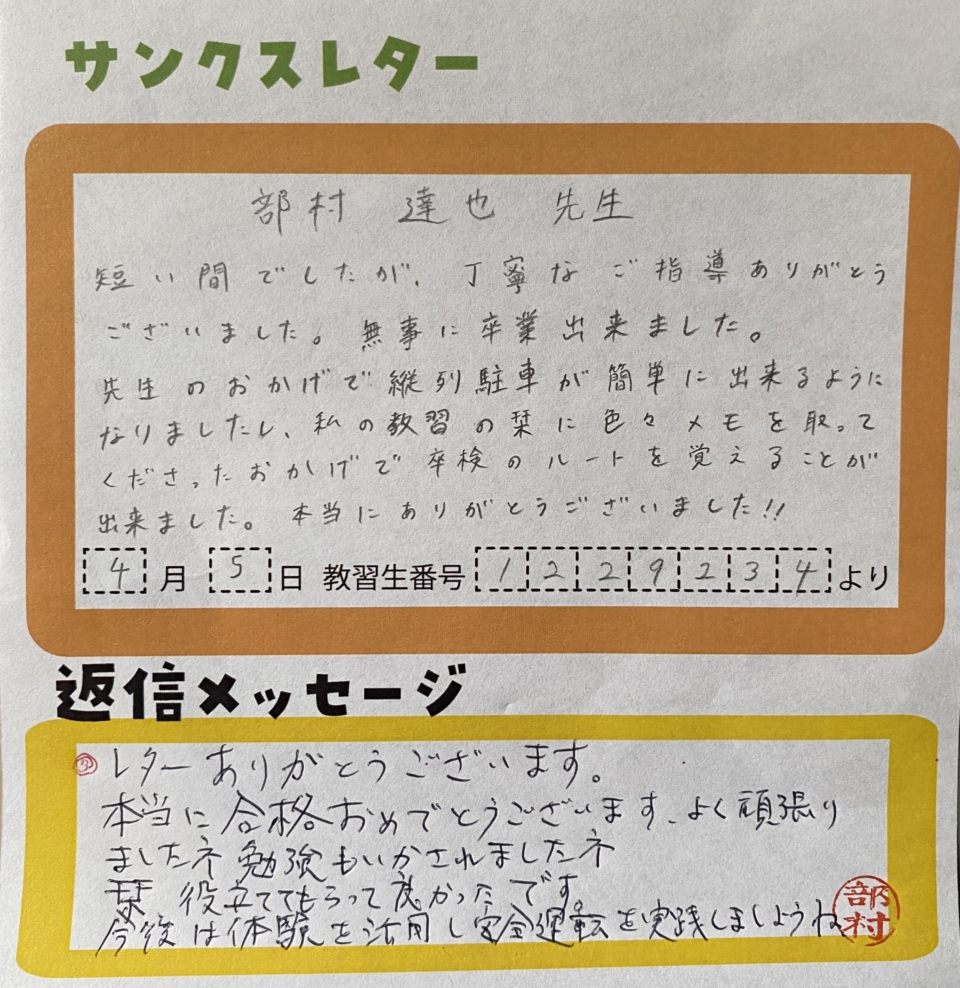 サンクスレター
部村 達也 先生
短い間でしたが、丁寧なご指導ありがとう
ございました。無事に卒業出来ました。
先生のおかげで縦列駐車が簡単に出来るように
なりましたし、私の教習の栞に色々メモを取って
くださったおかげで卒検のルートを覚えることが
出来ました。本当にありがとうございました!!
4月5日 教習生番号 1229234より
返信メッセージ
レターありがとうございます。
本当に合格おめでとうございます、よく頑張り
ましたネ 勉強もいかされましたネ
栞 役立ててもらって良かったです。
今後は体験を活用し安全運転を実践しましょうね
部村